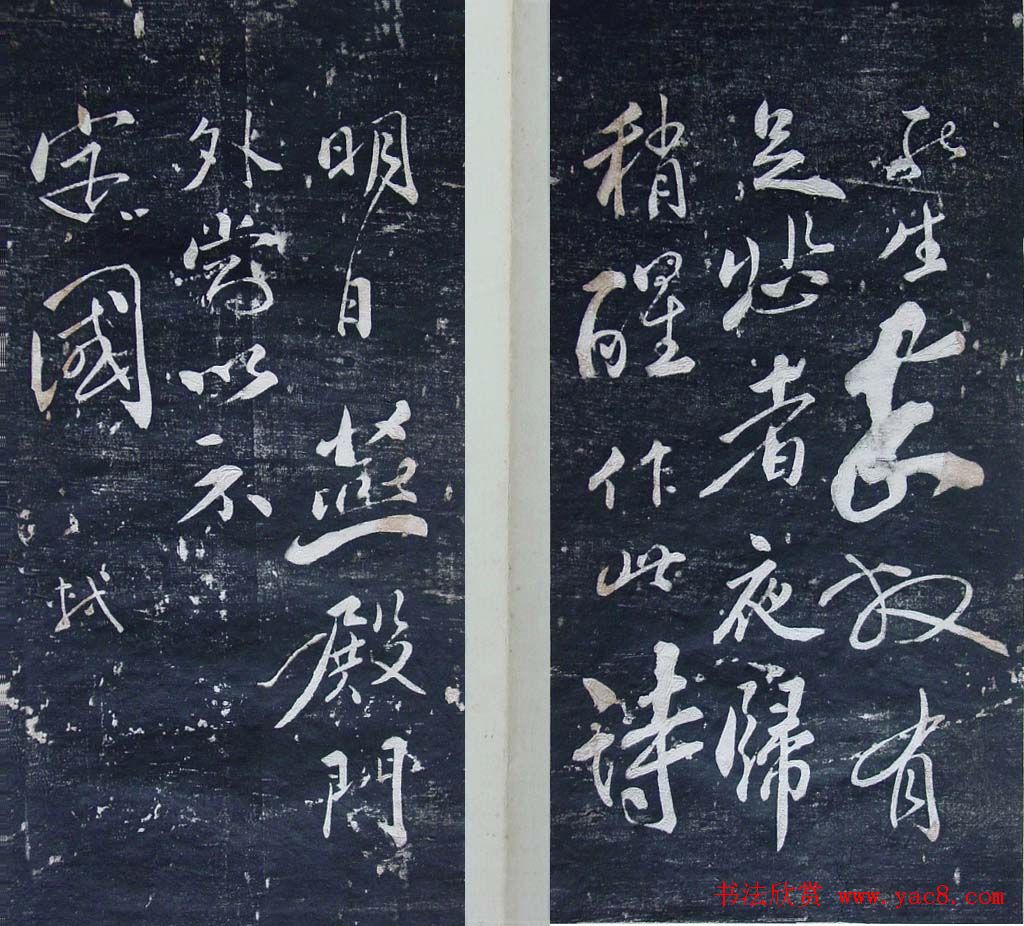 死生故有
足悲者夜歸
稍醒作此詩
明日殿門
外當以示
定國 軾
书法欣赏 www.yac8.com